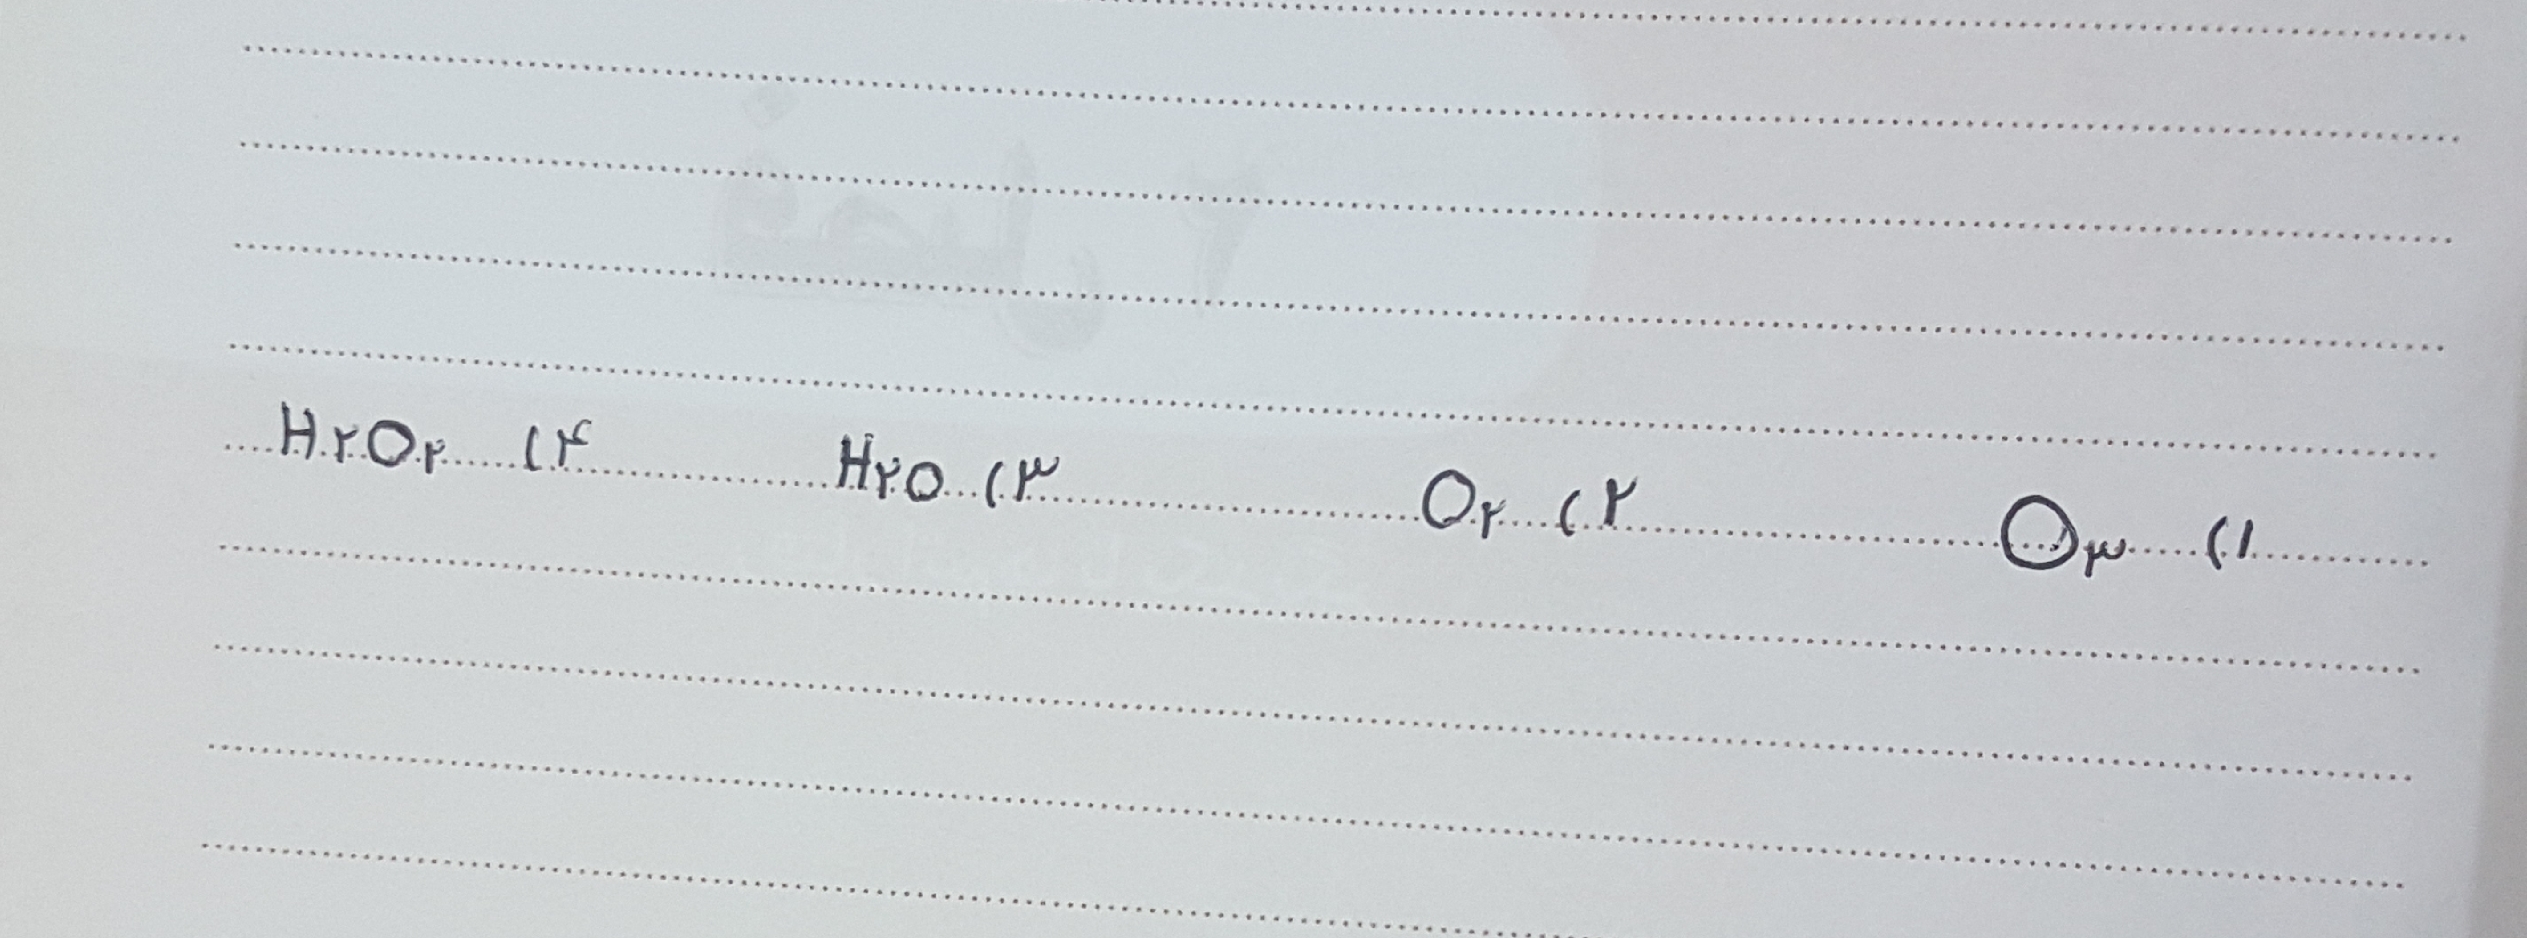 ۱) O۳ ۲) O۲ ۳) H۲O ۴) H۲O۲